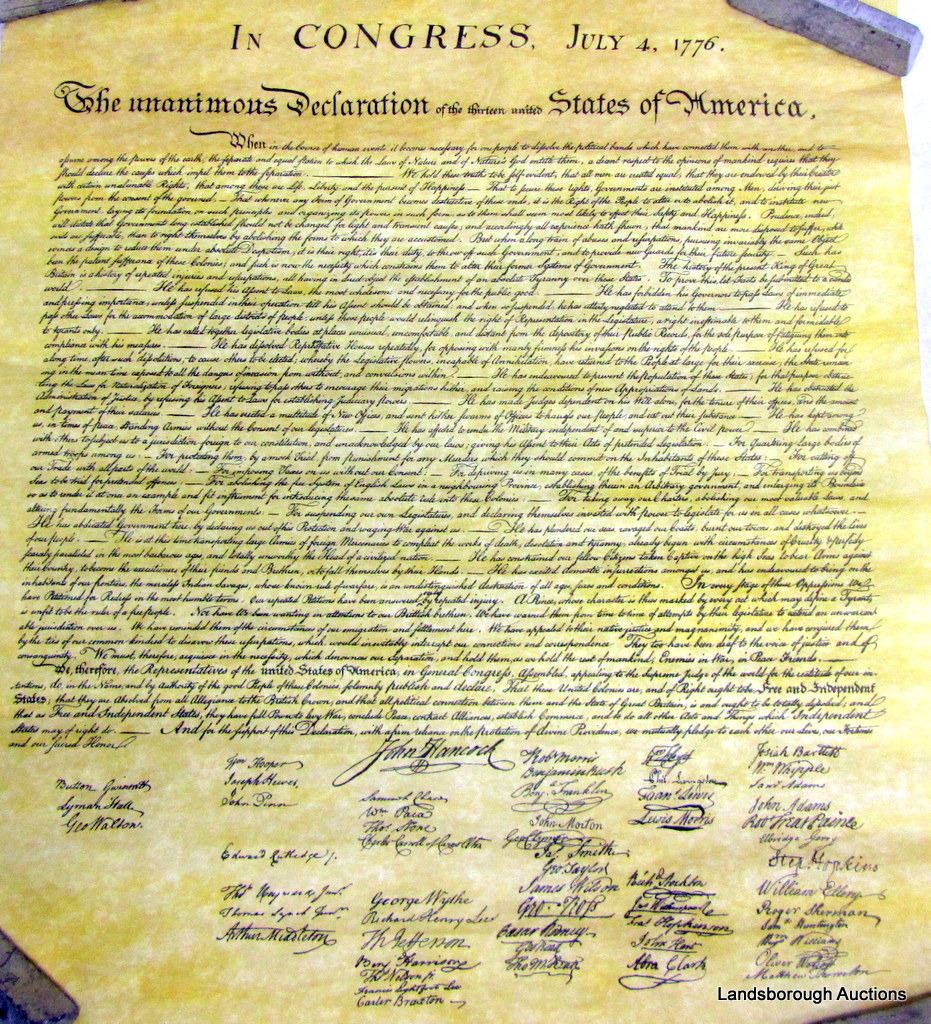 IN CONGRESS, JULY 4, 1776.
The unanimous Declaration of the thirteen united States of America,
When in the Course of human events it becomes necessary for one people to dissolve the political bands which have connected them with another, and to
assume among the powers of the earth, the separate and equal station to which the Laws of Nature and of Nature's God entitle them, a decent respect to the opinions of mankind requires that they
should declare the causes which impel them to the separation. — We hold these truths to be self-evident, that all men are created equal, that they are endowed by their Creator
with certain unalienable Rights, that among these are Life, Liberty and the pursuit of Happiness. — That to secure these rights, Governments are instituted among Men, deriving their just
powers from the consent of the governed, — That whenever any Form of Government becomes destructive of these ends, it is the Right of the People to alter or to abolish it, and to institute new
Government, laying its foundation on such principles and organizing its powers in such form, as to them shall seem most likely to effect their Safety and Happiness. Prudence, indeed,
will dictate that Governments long established should not be changed for light and transient causes; and accordingly all experience hath shewn, that mankind are more disposed to suffer, while
evils are sufferable, than to right themselves by abolishing the forms to which they are accustomed. But when a long train of abuses and usurpations, pursuing invariably the same Object
evinces a design to reduce them under absolute Despotism, it is their right, it is their duty, to throw off such Government, and to provide new Guards for their future security. — Such has
been the patient sufferance of these Colonies; and such is now the necessity which constrains them to alter their former Systems of Government. The history of the present King of Great
Britain is a history of repeated injuries and usurpations, all having in direct object the establishment of an absolute Tyranny over these States. To prove this, let Facts be submitted to a candid
world. — He has refused his Assent to Laws, the most wholesome and necessary for the public good. — He has forbidden his Governors to pass Laws of immediate
and pressing importance, unless suspended in their operation till his Assent should be obtained; and when so suspended, he has utterly neglected to attend to them. — He has refused to
pass other Laws for the accommodation of large districts of people, unless those people would relinquish the right of Representation in the Legislature, a right inestimable to them and formidable
to tyrants only. — He has called together legislative bodies at places unusual, uncomfortable, and distant from the depository of their Public Records, for the sole purpose of fatiguing them into
compliance with his measures. — He has dissolved Representative Houses repeatedly, for opposing with manly firmness his invasions on the rights of the people. — He has refused for
a long time, after such dissolutions, to cause others to be elected; whereby the Legislative powers, incapable of Annihilation, have returned to the People at large for their exercise; the State remain-
ing in the mean time exposed to all the dangers of invasion from without, and convulsions within. — He has endeavoured to prevent the population of these States; for that purpose obstruc-
ting the Laws for Naturalization of Foreigners; refusing to pass others to encourage their migrations hither, and raising the conditions of new Appropriations of Lands. — He has obstructed the
Administration of Justice, by refusing his Assent to Laws for establishing Judiciary powers. — He has made Judges dependent on his Will alone, for the tenure of their offices, and the amount
and payment of their salaries. — He has erected a multitude of New Offices, and sent hither swarms of Officers to harrass our people, and eat out their substance. — He has kept among
us, in times of peace, Standing Armies without the Consent of our legislatures. — He has affected to render the Military independent of and superior to the Civil power. — He has combined
with others to subject us to a jurisdiction foreign to our constitution, and unacknowledged by our laws; giving his Assent to their Acts of pretended Legislation: — For Quartering large bodies of
armed troops among us: — For protecting them, by a mock Trial, from punishment for any Murders which they should commit on the Inhabitants of these States: — For cutting off
our Trade with all parts of the world: — For imposing Taxes on us without our Consent: — For depriving us in many cases, of the benefits of Trial by Jury: — For transporting us beyond
Seas to be tried for pretended offences: — For abolishing the free System of English Laws in a neighbouring Province, establishing therein an Arbitrary government, and enlarging its Boundaries
so as to render it at once an example and fit instrument for introducing the same absolute rule into these Colonies: — For taking away our Charters, abolishing our most valuable Laws, and
altering fundamentally the Forms of our Governments: — For suspending our own Legislatures, and declaring themselves invested with power to legislate for us in all cases whatsoever. —
He has abdicated Government here, by declaring us out of his Protection and waging War against us. — He has plundered our seas, ravaged our Coasts, burnt our towns, and destroyed the lives
of our people. — He is at this time transporting large Armies of foreign Mercenaries to compleat the works of death, desolation and tyranny, already begun with circumstances of Cruelty & perfidy
scarcely paralleled in the most barbarous ages, and totally unworthy the Head of a civilized nation. — He has constrained our fellow Citizens taken Captive on the high Seas to bear Arms against
their Country, to become the executioners of their friends and Brethren, or to fall themselves by their Hands. — He has excited domestic insurrections amongst us, and has endeavoured to bring on the
inhabitants of our frontiers, the merciless Indian Savages, whose known rule of warfare, is an undistinguished destruction of all ages, sexes and conditions. In every stage of these Oppressions We
have Petitioned for Redress in the most humble terms: Our repeated Petitions have been answered only by repeated injury. A Prince, whose character is thus marked by every act which may define a Tyrant,
is unfit to be the ruler of a free people. Nor have We been wanting in attentions to our Brittish brethren. We have warned them from time to time of attempts by their legislature to extend an unwarrant-
able jurisdiction over us. We have reminded them of the circumstances of our emigration and settlement here. We have appealed to their native justice and magnanimity, and we have conjured them
by the ties of our common kindred to disavow these usurpations, which, would inevitably interrupt our connections and correspondence. They too have been deaf to the voice of justice and of
consanguinity. We must, therefore, acquiesce in the necessity, which denounces our Separation, and hold them, as we hold the rest of mankind, Enemies in War, in Peace Friends. —
We, therefore, the Representatives of the united States of America, in General Congress, Assembled, appealing to the Supreme Judge of the world for the rectitude of our in-
tentions, do, in the Name, and by Authority of the good People of these Colonies, solemnly publish and declare, That these United Colonies are, and of Right ought to be Free and Independent
States; that they are Absolved from all Allegiance to the British Crown, and that all political connection between them and the State of Great Britain, is and ought to be totally dissolved; and
that as Free and Independent States, they have full Power to levy War, conclude Peace, contract Alliances, establish Commerce, and to do all other Acts and Things which Independent
States may of right do. — And for the support of this Declaration, with a firm reliance on the protection of divine Providence, we mutually pledge to each other our Lives, our Fortunes
and our sacred Honor.
John Hancock
Button Gwinnett
Lyman Hall
Geo Walton.
Wm Hooper
Joseph Hewes,
John Penn
Edward Rutledge /.
Thos Heyward Junr.
Thomas Lynch Junr.
Arthur Middleton
Samuel Chase
Wm Paca
Thos Stone
Charles Carroll of Carrollton
George Wythe
Richard Henry Lee
Th Jefferson
Benj Harrison
Thos Nelson jr.
Francis Lightfoot Lee
Carter Braxton
Robt Morris
Benjamin Rush
Benj. Franklin
John Morton
Geo Clymer
Jas. Smith
Geo. Taylor
James Wilson
Geo. Ross
Caesar Rodney
Geo Read
Tho M:Kean
Phil. Livingston
Frans. Lewis
Lewis Morris
Richd. Stockton
Jno Witherspoon
Fras. Hopkinson
John Hart
Abra Clark
Josiah Bartlett
Wm Whipple
Saml Adams
John Adams
Robt Treat Paine
Elbridge Gerry
Step. Hopkins
William Ellery
Roger Sherman
Saml Huntington
Wm Williams
Oliver Wolcott
Matthew Thornton
Landsborough Auctions